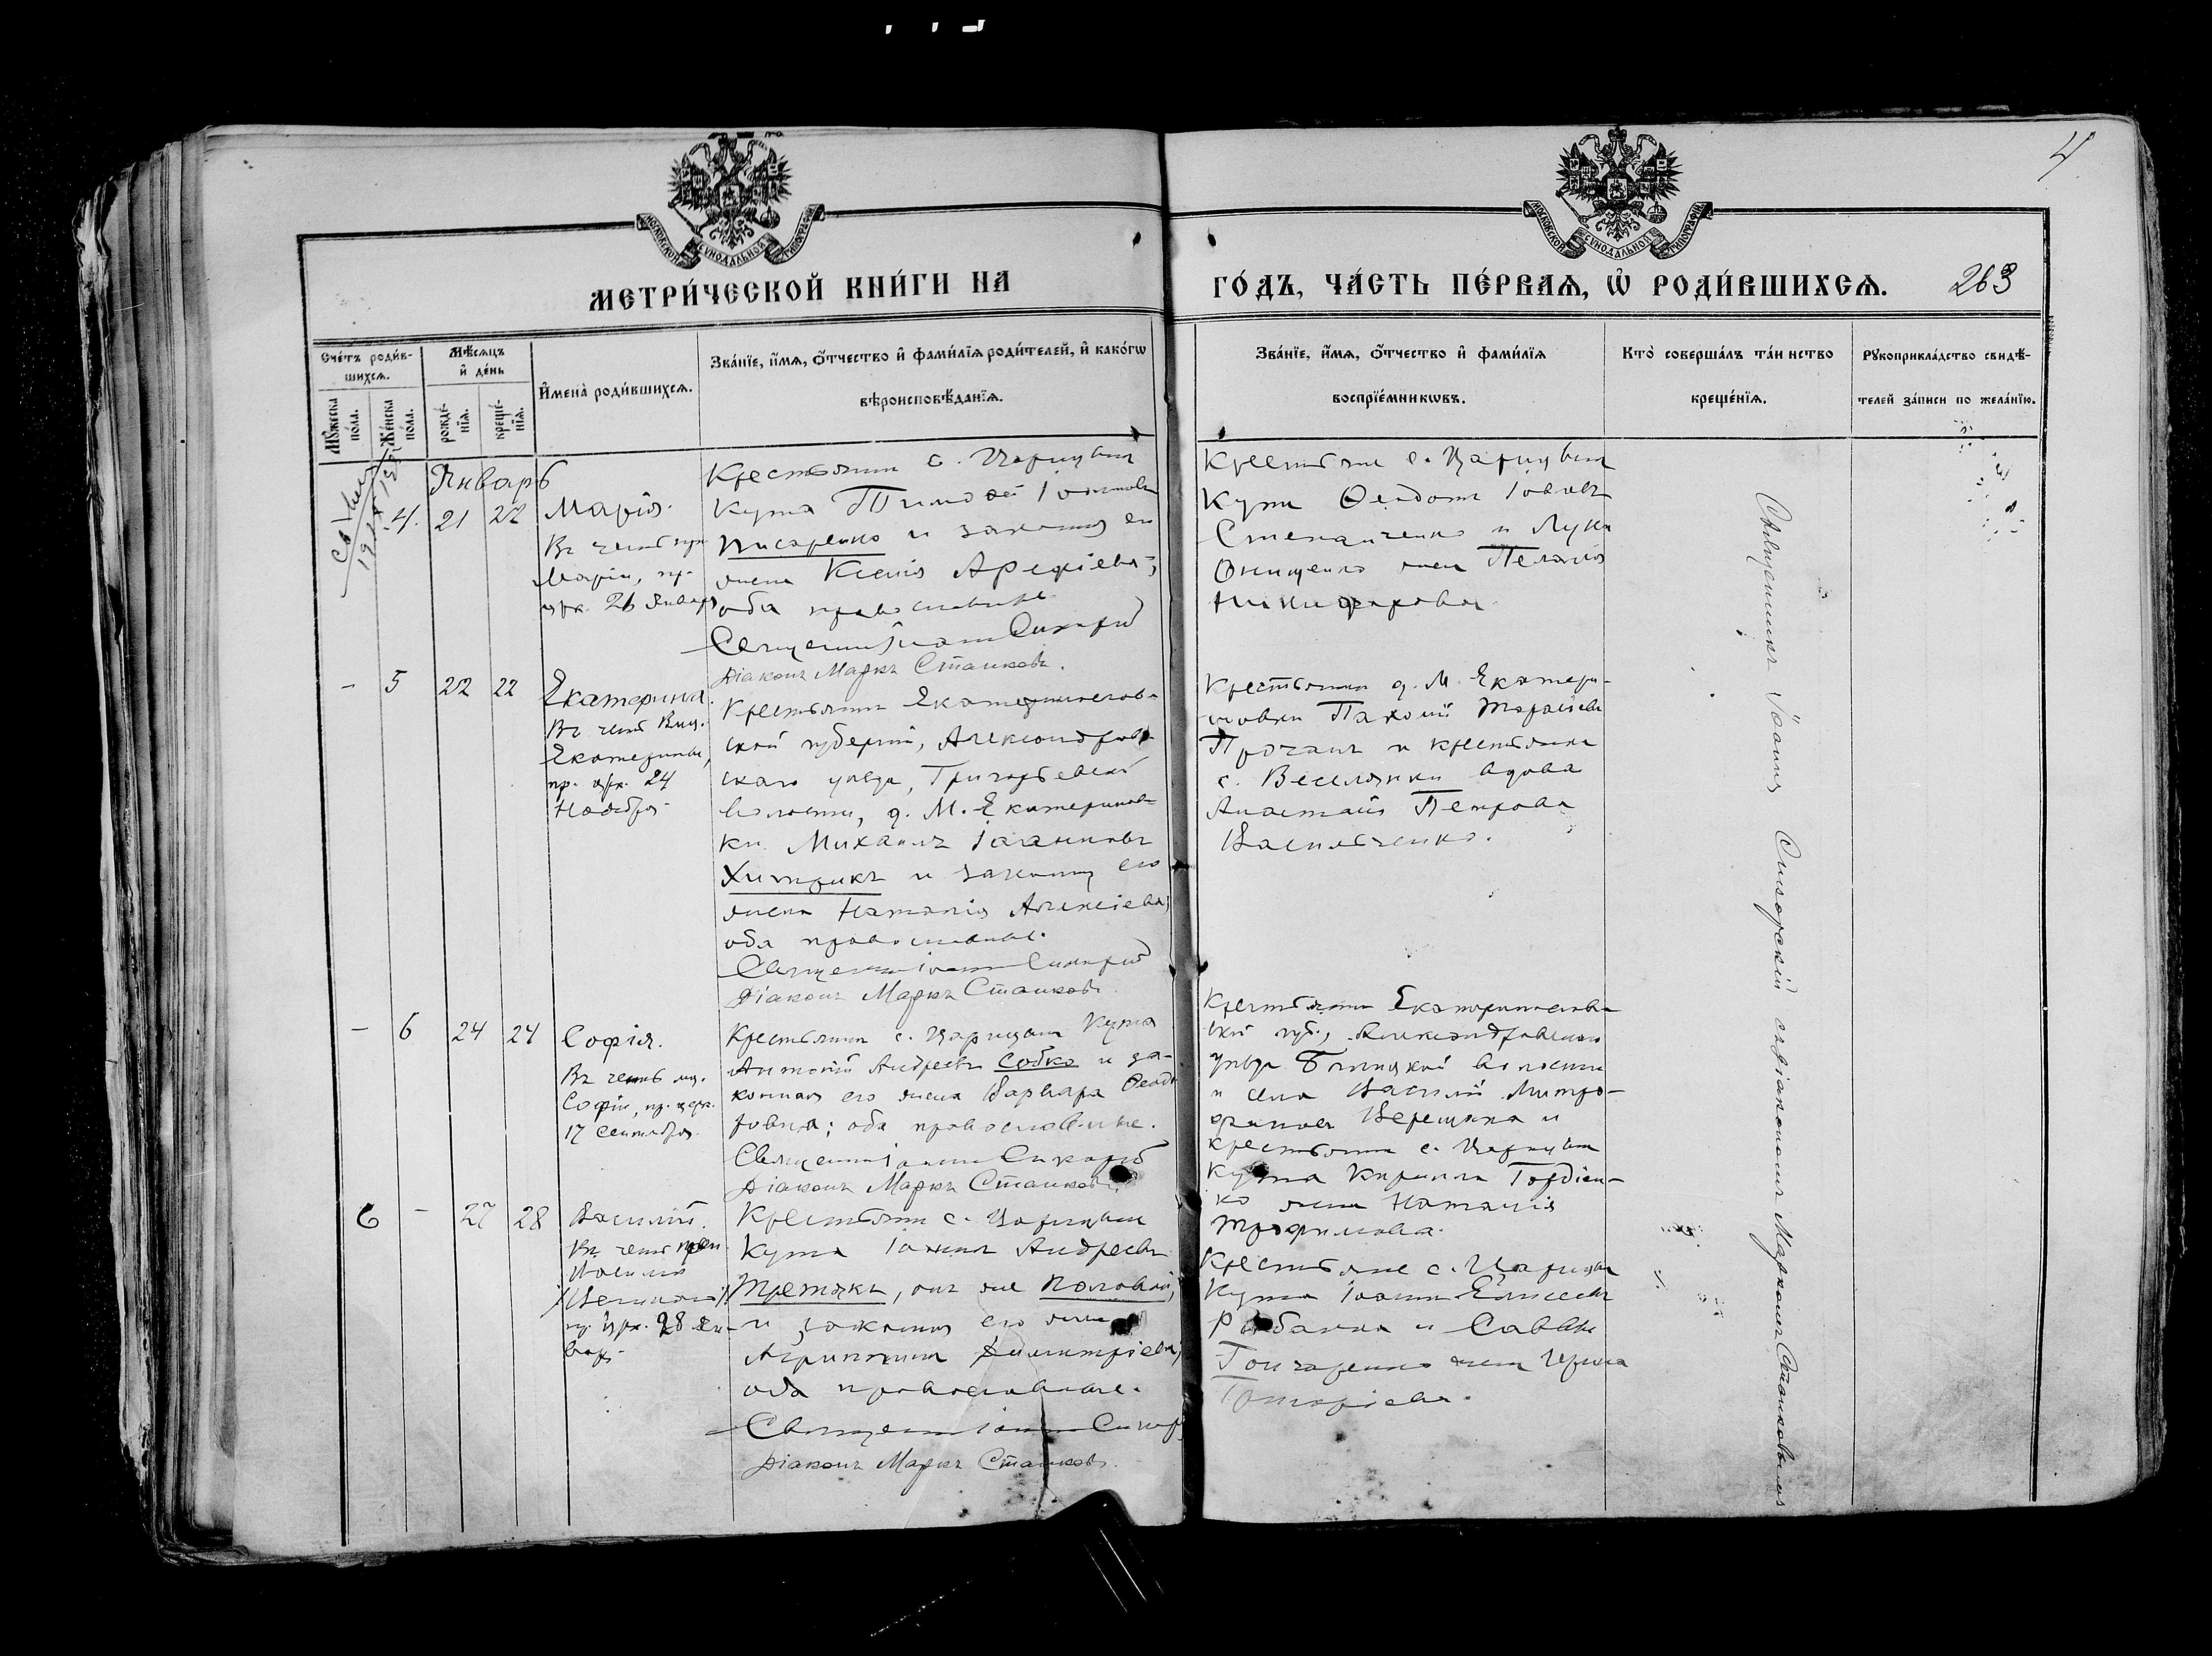 4
МОСКОВСКОЙ СѴНОДАЛЬНОЙ ТИПОГРАФІИ
МОСКОВСКОЙ СѴНОДАЛЬНОЙ ТИПОГРАФІИ
МЕТРИ́ЧЕСКОЙ КНИ́ГИ НА ГО́ДЪ, ЧА́СТЬ ПЕ́РВАѦ, Ѡ҆ РОДИ́ВШИХСѦ. 263
Сче́тъ роди́в-
шихсѧ.
Мꙋ́жеска по́ла.
Же́нска по́ла.
Мѣ́сѧцъ
и҆ де́нь
рожде́-
нїѧ.
креще́-
нїѧ.
И҆мена̀ роди́вшихсѧ.
Зва́нїе, и҆́мѧ, ѻ҆́тчество и҆ фами́лїѧ роди́телей, и҆ како́гѡ
вѣроисповѣ́данїѧ.
Зва́нїе, и҆́мѧ, ѻ҆́тчество и҆ фами́лїѧ
воспрїе́мникѡвъ.
Кто̀ соверша́лъ та́инство
креще́нїѧ.
Рꙋкоприкла́дство свидѣ́-
телей за́писи по жела́нїю.
Январь
4. 21 22 Марія.
Въ честь
Маріи, пр.
црк. 26 Января
Крестьянинъ с. Царицына
Кута Тимофей Іоанновъ
Писаренко и законная его
жена Ксенія Арефіева;
оба православные.
Священникъ Іоаннъ Сикорскій
Діаконъ Маркъ Станковъ.
Крестьяне с. Царицына
Кута Ѳеодотъ Іововъ
Степанченко и Луки
Онищенко жена Пелагія
Никифорова.
- 5 22 22 Екатерина.
Въ честь Вмц.
Екатерины,
пр. црк. 24
Ноября
Крестьянинъ Екатеринослав-
ской губерніи, Александров-
скаго уѣзда, Григорьевской
волости, д. М. Екатеринов-
ки Михаилъ Іоанновъ
Хитрикъ и законная его
жена Наталія Алексіева;
оба православные.
Священникъ Іоаннъ Сикорскій
Діаконъ Маркъ Станковъ.
Крестьянинъ д. М. Екатери-
новки Пахомій Тарасіевъ
Прочанъ и крестьянка
с. Веселянки вдова
Анастасія Петрова
Васильченко.
- 6 24 24 Софія.
Въ честь мц.
Софіи, пр. церк.
17 Сентября.
Крестьянинъ с. Царицына Кута
Антоній Андреевъ Собко и за-
конная его жена Варвара Ѳеодо-
ровна; оба православные.
Священникъ Іоаннъ Сикорскій
Діаконъ Маркъ Станковъ.
Крестьянинъ Екатеринослав-
ской губ., Александровскаго
уѣзда волости
и села Василій Митро-
фановъ Верещака и
крестьянина с. Царицына
Кута Кирилла Гордіен-
ко жена Наталія
Трофимова.
6 - 27 28 Василій.
Въ честь
Василія
пр. црк. 28 Ян-
варя
Крестьянинъ с. Царицына
Кута Іоаннъ Андреевъ
Третякъ, онъ же Половой,
и законная его жена
Агриппина Димитріева;
оба православные.
Священникъ Іоаннъ Сикорскій
Діаконъ Маркъ Станковъ.
Крестьяне с. Царицына
Кута Іоаннъ Елисеевъ
Рыбалка и Саввы
Гончаренко жена Ирина
Григоріева.
Священникъ Іоаннъ Сикорскій съ діакономъ Маркомъ Станковымъ